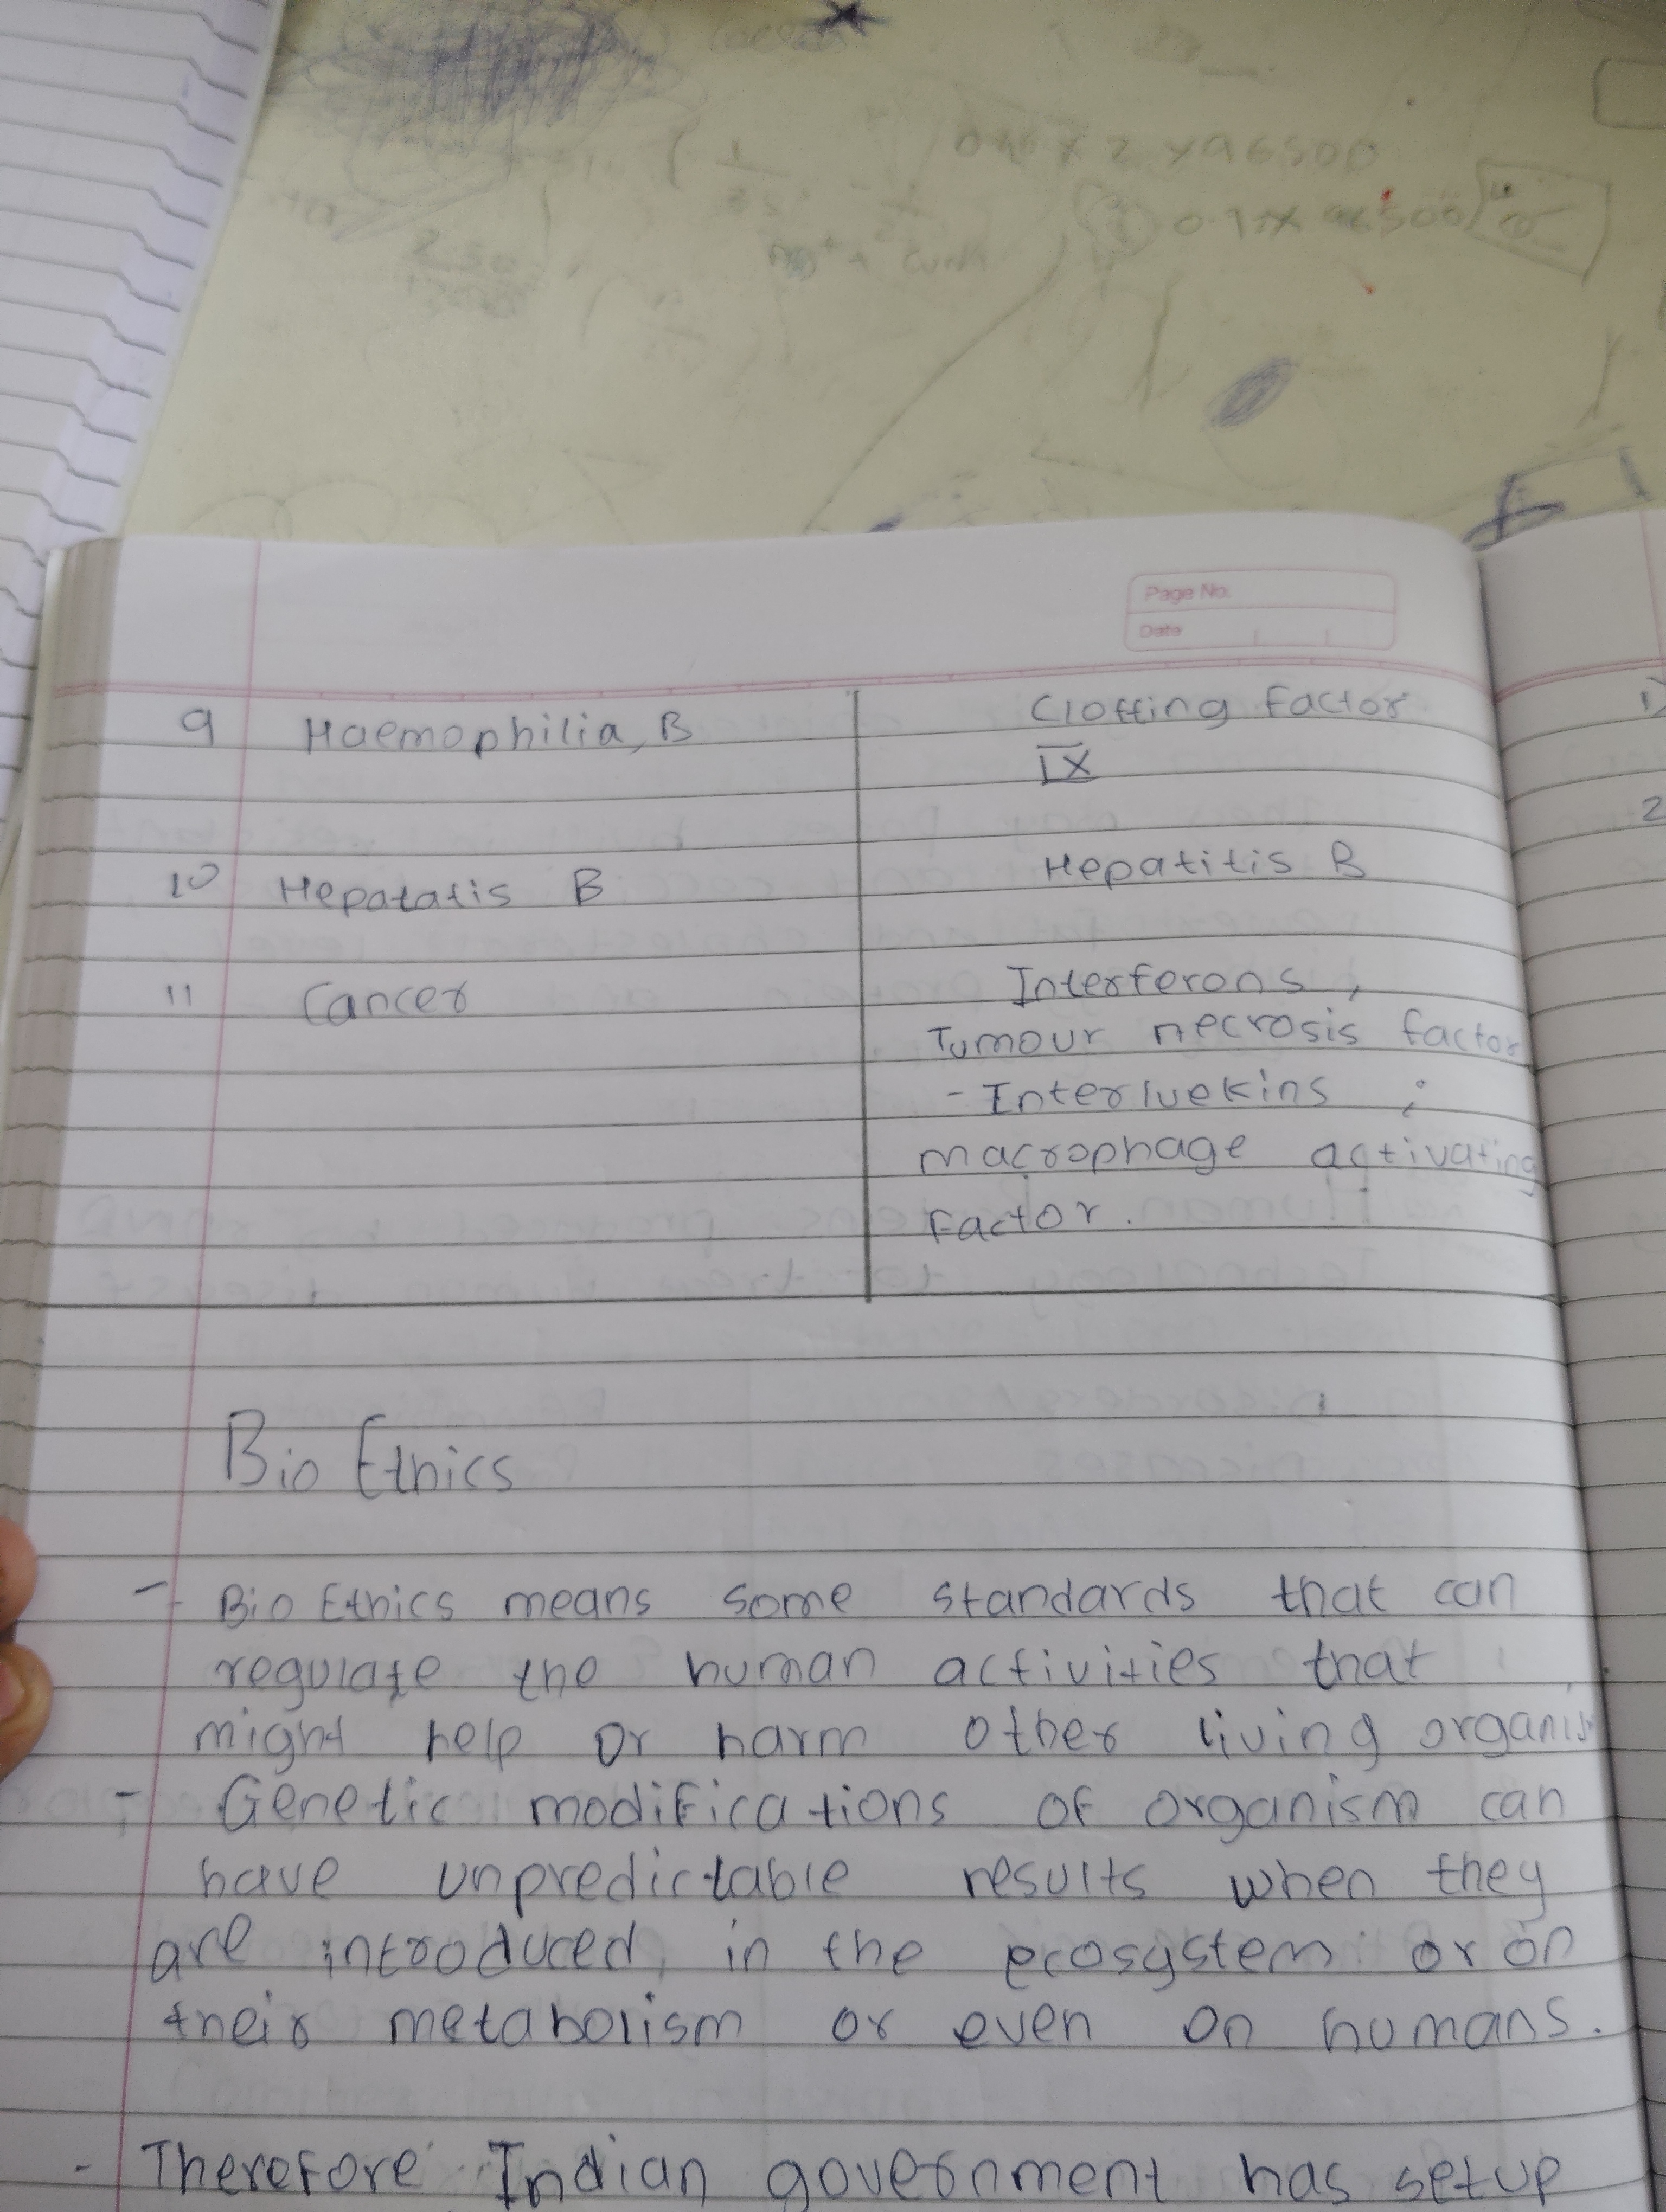 040 x 2 x 96500
Page No.
Date
9 Haemophilia, B Clotting factor
IX
10 Hepatatis B Hepatitis B
11 Cancer Interferons,
Tumour necrosis factor
- Interluekins ;
macrophage activating
Factor.
Bio Ethics
- Bio Ethics means some standards that can
regulate the human activities that
might help or harm other living organis
- Genetic modifications of organism can
have unpredictable results when they
are introduced in the ecosystem or on
their metabolism or even on humans.
- Therefore Indian government has setup
2